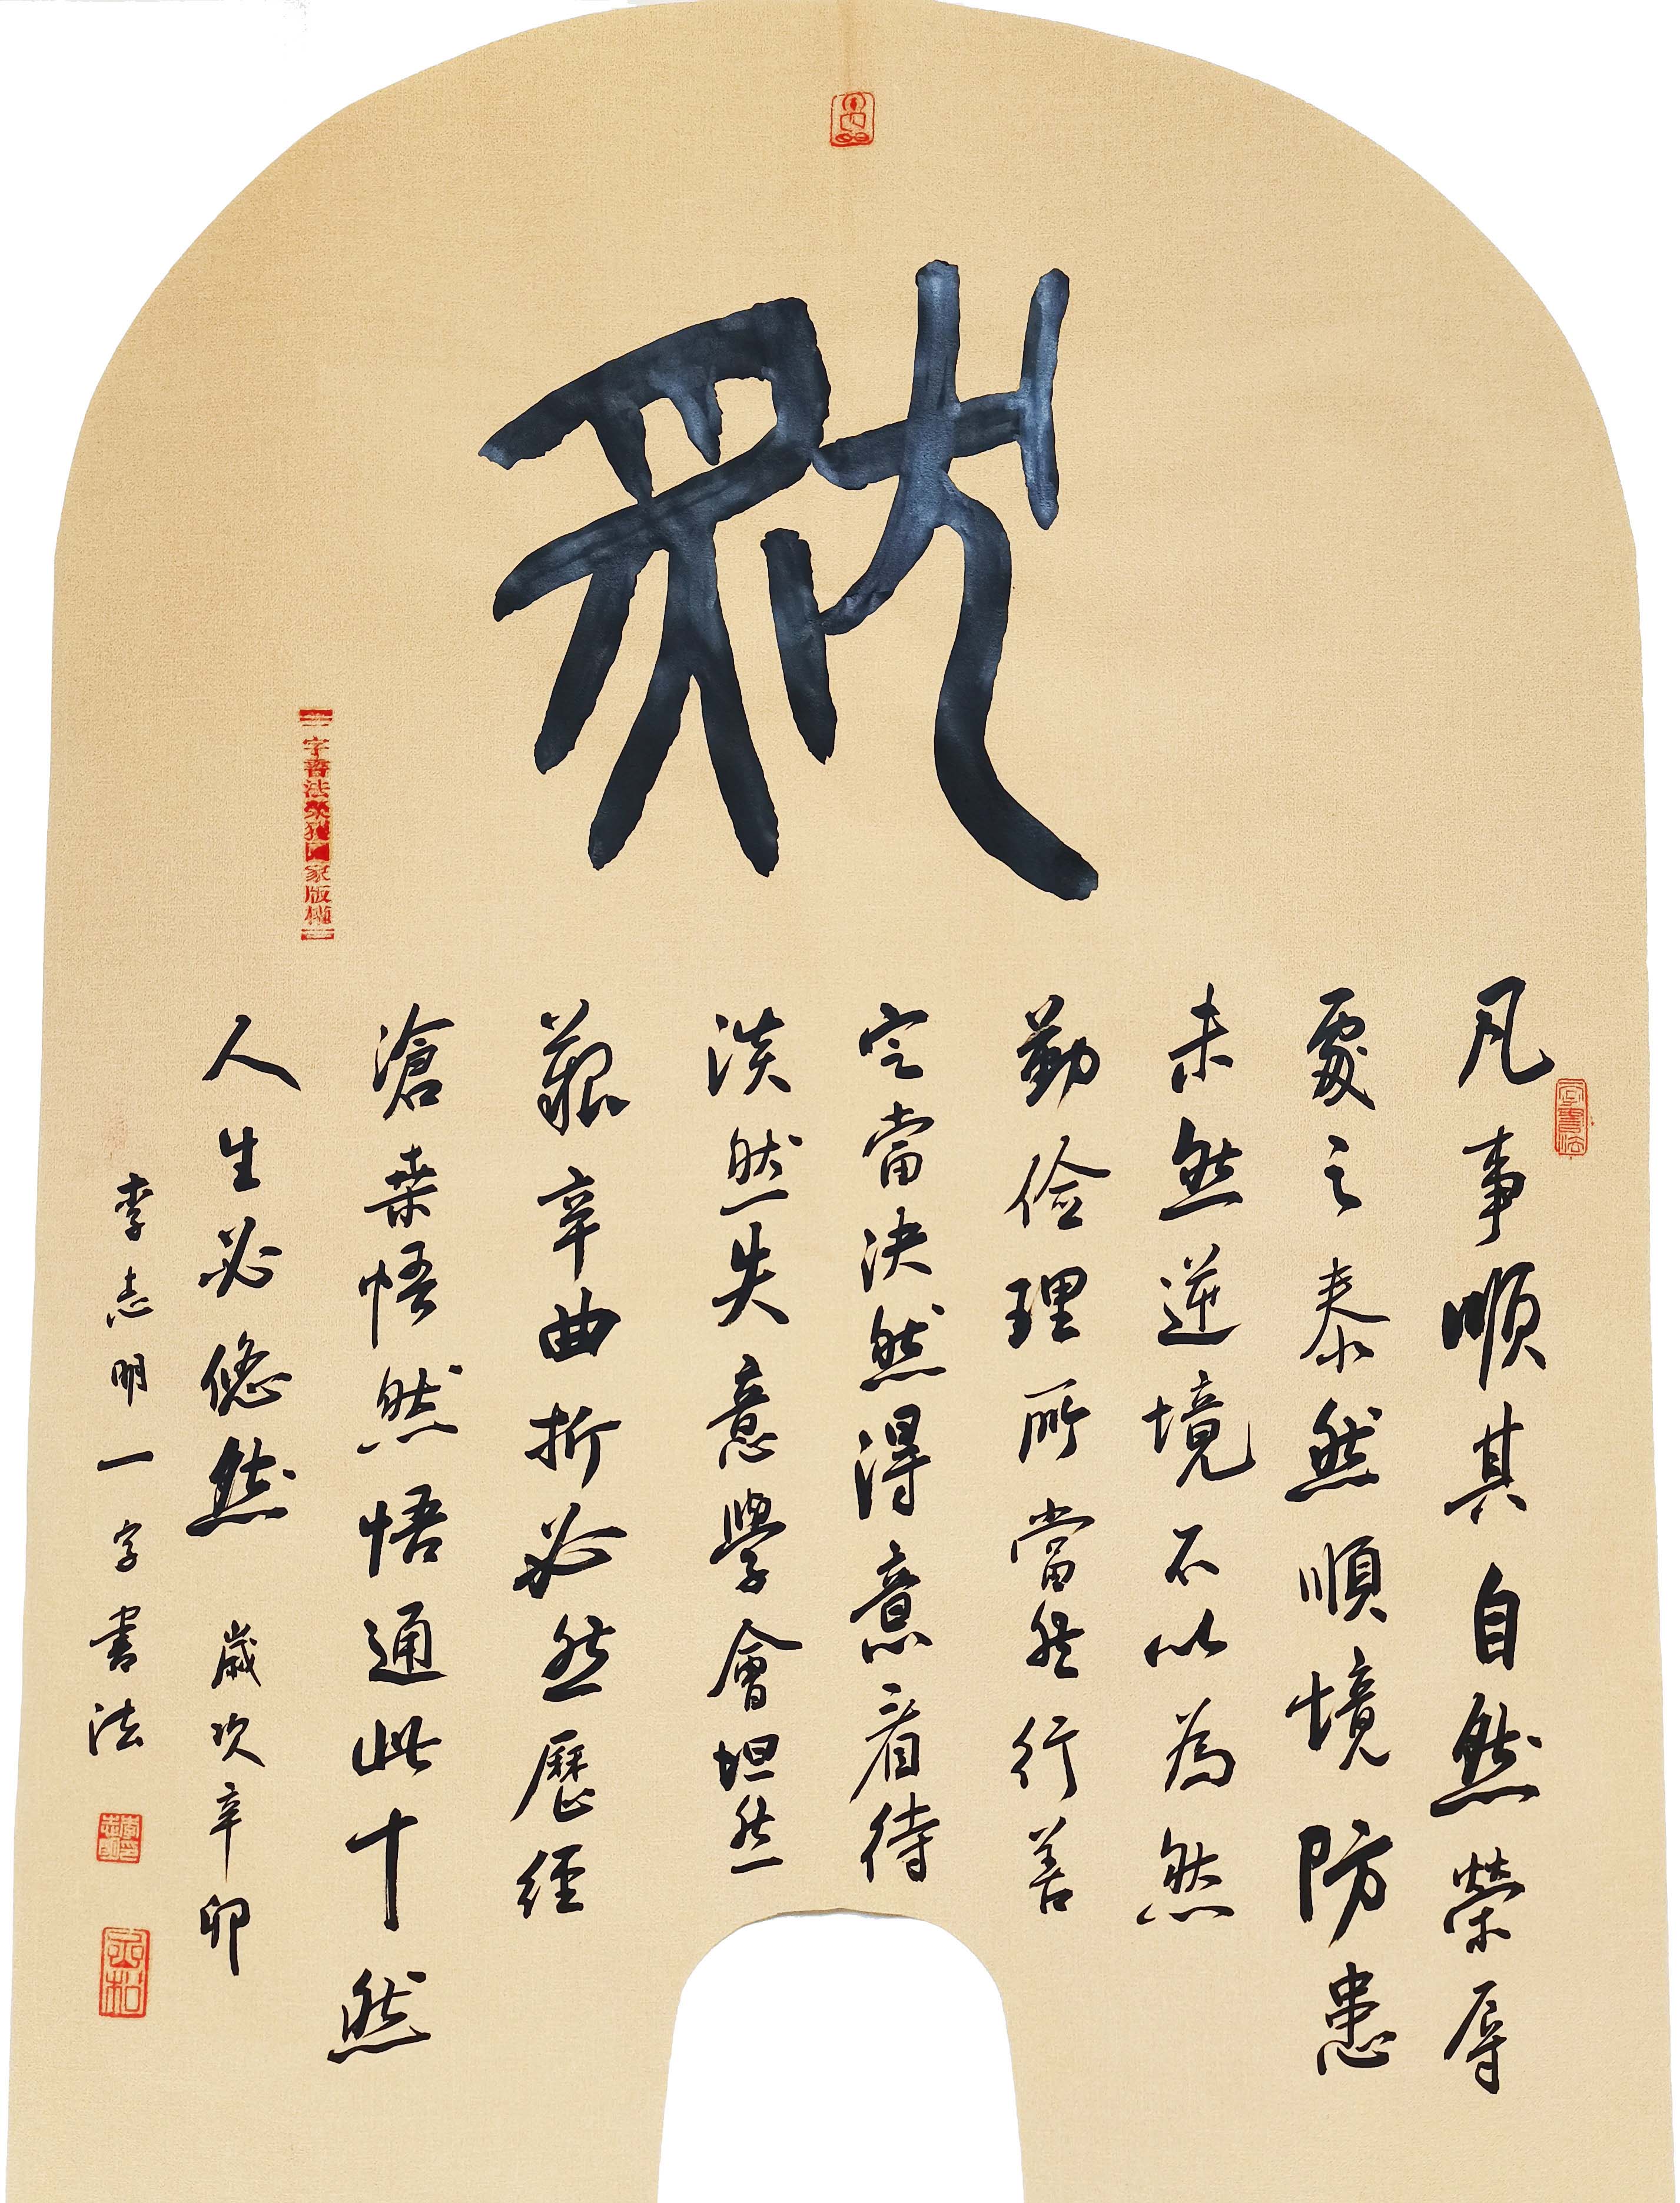 然
一字書法榮獲國家版權
凡事順其自然榮辱
處之泰然順境防患
未然逆境不以為然
勤儉理所當然行善
定當決然得意看待
淡然失意學會坦然
艱辛曲折必然歷經
滄桑悟然悟通此十然
人生必悠然 歲次辛卯
李志明一字書法